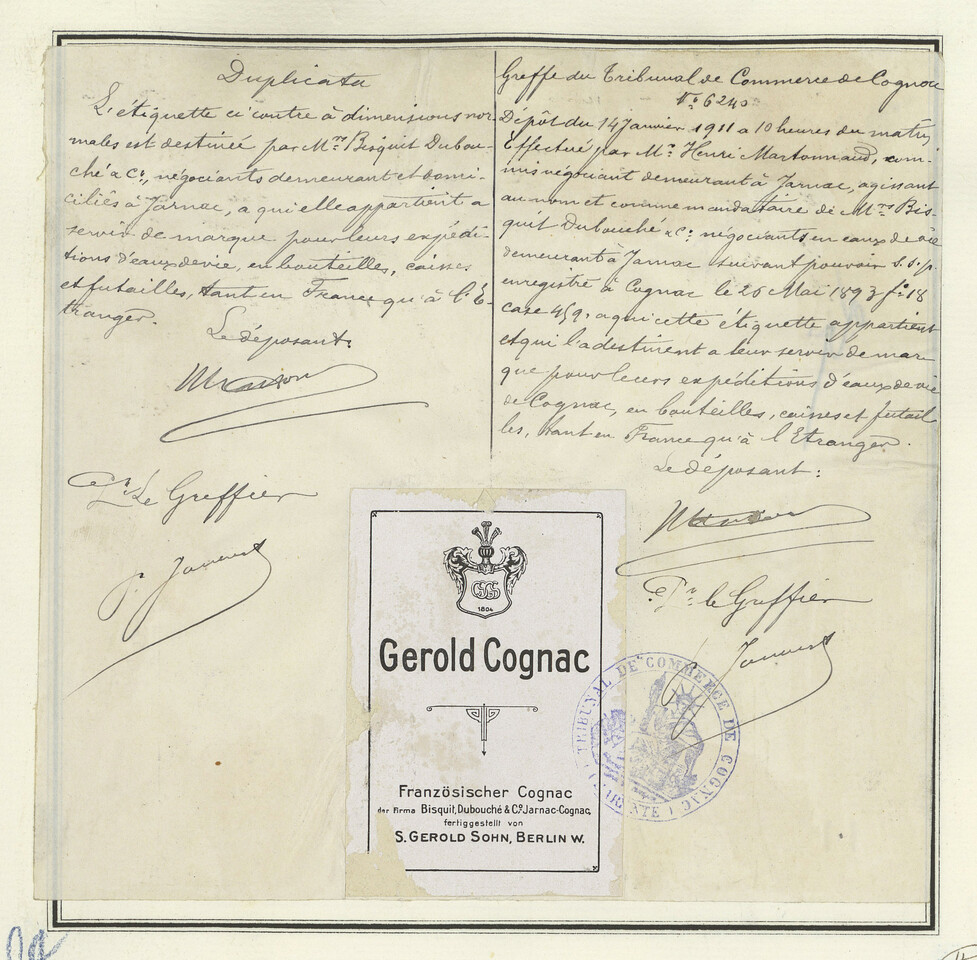 Duplicata
L'étiquette ci contre à dimensions nor-
males est destinée par M.rs Bisquit Dubou-
ché & C.o, négociants demeurant et domi-
ciliés à Jarnac, a qui elle appartient a
servir de marque pour leurs expédi-
tions d'eaux de vie, en bouteilles, caisses
et futailles, tant en France qu'à l'É-
tranger.
Le déposant:
P.r Le Greffier
Greffe du Tribunal de Commerce de Cognac
N.o 6240
Dépôt du 14 Janvier 1911 a 10 heures du matin,
Effectué par M.r Henri Martonnaud, com-
mis négociant demeurant à Jarnac, agissant
au nom et comme mandataire de M.rs Bis-
quit Dubouché & C.o négociants en eaux de vie
demeurant à Jarnac suivant pouvoir s.s.p.
enregistré à Cognac le 26 Mai 1893 f.o 18
case 459, a qui cette étiquette appartient
et qui l'a destinent a leur servir de mar-
que pour leurs expéditions d'eaux de vie
de Cognac, en bouteilles, caisses et futail-
les, tant en France qu'à l'Etranger.
Le déposant:
P.r le Greffier
1804
Gerold Cognac
Französischer Cognac
der Firma Bisquit, Dubouché & Co. Jarnac-Cognac,
fertiggestellt von
S. GEROLD SOHN, BERLIN W.
TRIBUNAL DE COMMERCE DE COGNAC